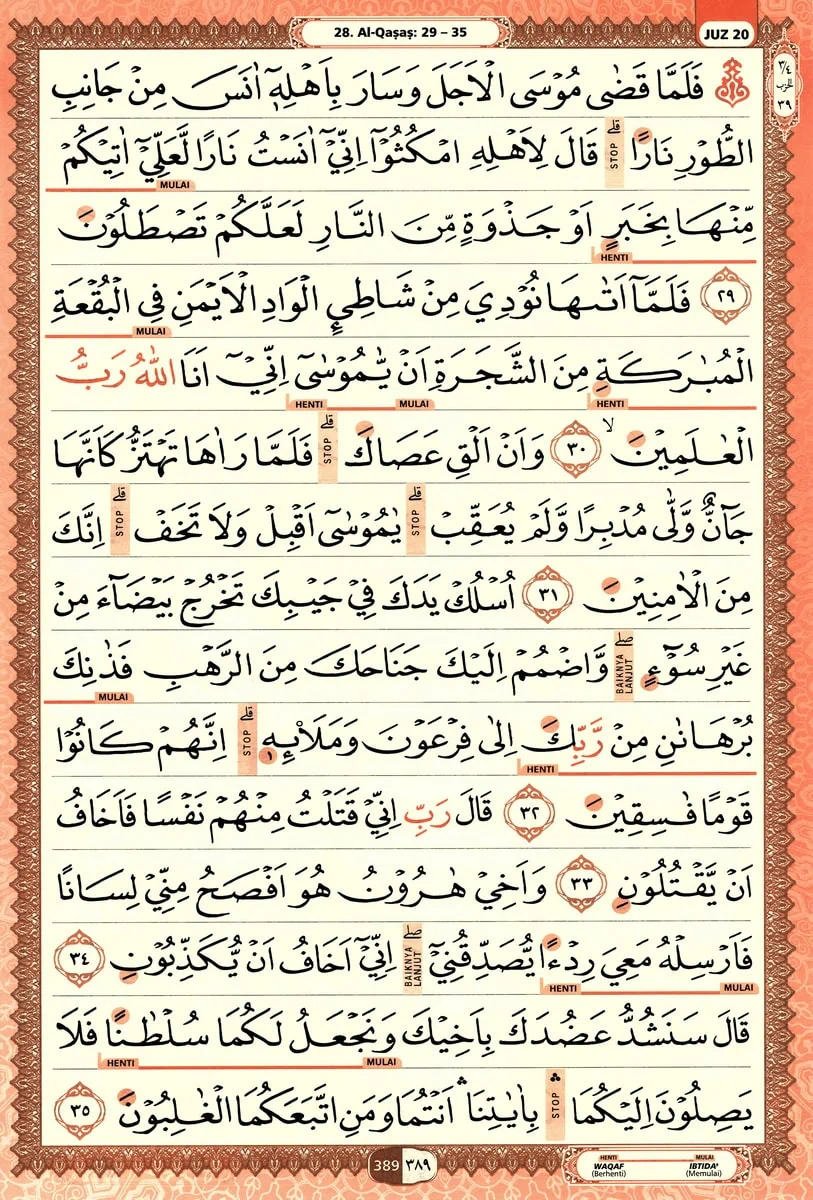 28. Al-Qaṣaṣ: 29 – 35
JUZ 20
٣/٤
الحزب
٣٩
فَلَمَّا قَضٰى مُوْسَى الْاَجَلَ وَسَارَ بِاَهْلِهٖٓ اٰنَسَ مِنْ جَانِبِ
الطُّوْرِ نَارًاۗ قلے STOP قَالَ لِاَهْلِهِ امْكُثُوْٓا اِنِّيْٓ اٰنَسْتُ نَارًا لَّعَلِّيْٓ اٰتِيْكُمْ
MULAI
مِّنْهَا بِخَبَرٍ اَوْ جَذْوَةٍ مِّنَ النَّارِ لَعَلَّكُمْ تَصْطَلُوْنَ
HENTI
٢٩ فَلَمَّآ اَتٰىهَا نُوْدِيَ مِنْ شَاطِئِ الْوَادِ الْاَيْمَنِ فِى الْبُقْعَةِ
MULAI
الْمُبٰرَكَةِ مِنَ الشَّجَرَةِ اَنْ يّٰمُوْسٰٓى اِنِّيْٓ اَنَا اللّٰهُ رَبُّ
HENTI MULAI HENTI
الْعٰلَمِيْنَ ۙ ٣٠ وَاَنْ اَلْقِ عَصَاكَ قلے STOP فَلَمَّا رَاٰهَا تَهْتَزُّ كَاَنَّهَا
جَاۤنٌّ وَّلّٰى مُدْبِرًا وَّلَمْ يُعَقِّبْ قلے STOP يٰمُوْسٰٓى اَقْبِلْ وَلَا تَخَفْ قلے STOP اِنَّكَ
مِنَ الْاٰمِنِيْنَ ٣١ اُسْلُكْ يَدَكَ فِيْ جَيْبِكَ تَخْرُجْ بَيْضَاۤءَ مِنْ
غَيْرِ سُوْۤءٍ صلے BAIKNYA LANJUT وَّاضْمُمْ اِلَيْكَ جَنَاحَكَ مِنَ الرَّهْبِ فَذٰنِكَ
MULAI
بُرْهَانٰنِ مِنْ رَّبِّكَ اِلٰى فِرْعَوْنَ وَمَلَا۟ىِٕهٖ قلے STOP اِنَّهُمْ كَانُوْا
HENTI ١
قَوْمًا فٰسِقِيْنَ ٣٢ قَالَ رَبِّ اِنِّيْ قَتَلْتُ مِنْهُمْ نَفْسًا فَاَخَافُ
اَنْ يَّقْتُلُوْنِ ٣٣ وَاَخِيْ هٰرُوْنُ هُوَ اَفْصَحُ مِنِّيْ لِسَانًا
فَاَرْسِلْهُ مَعِيَ رِدْءًا يُّصَدِّقُنِيْٓ صلے BAIKNYA LANJUT اِنِّيْٓ اَخَافُ اَنْ يُّكَذِّبُوْنِ ٣٤
MULAI HENTI
قَالَ سَنَشُدُّ عَضُدَكَ بِاَخِيْكَ وَنَجْعَلُ لَكُمَا سُلْطٰنًا فَلَا
MULAI HENTI
يَصِلُوْنَ اِلَيْكُمَا ۛ STOP بِاٰيٰتِنَا ۛ اَنْتُمَا وَمَنِ اتَّبَعَكُمَا الْغٰلِبُوْنَ ٣٥
389 ٣٨٩
HENTI MULAI
WAQAF IBTIDA'
(Berhenti) (Memulai)